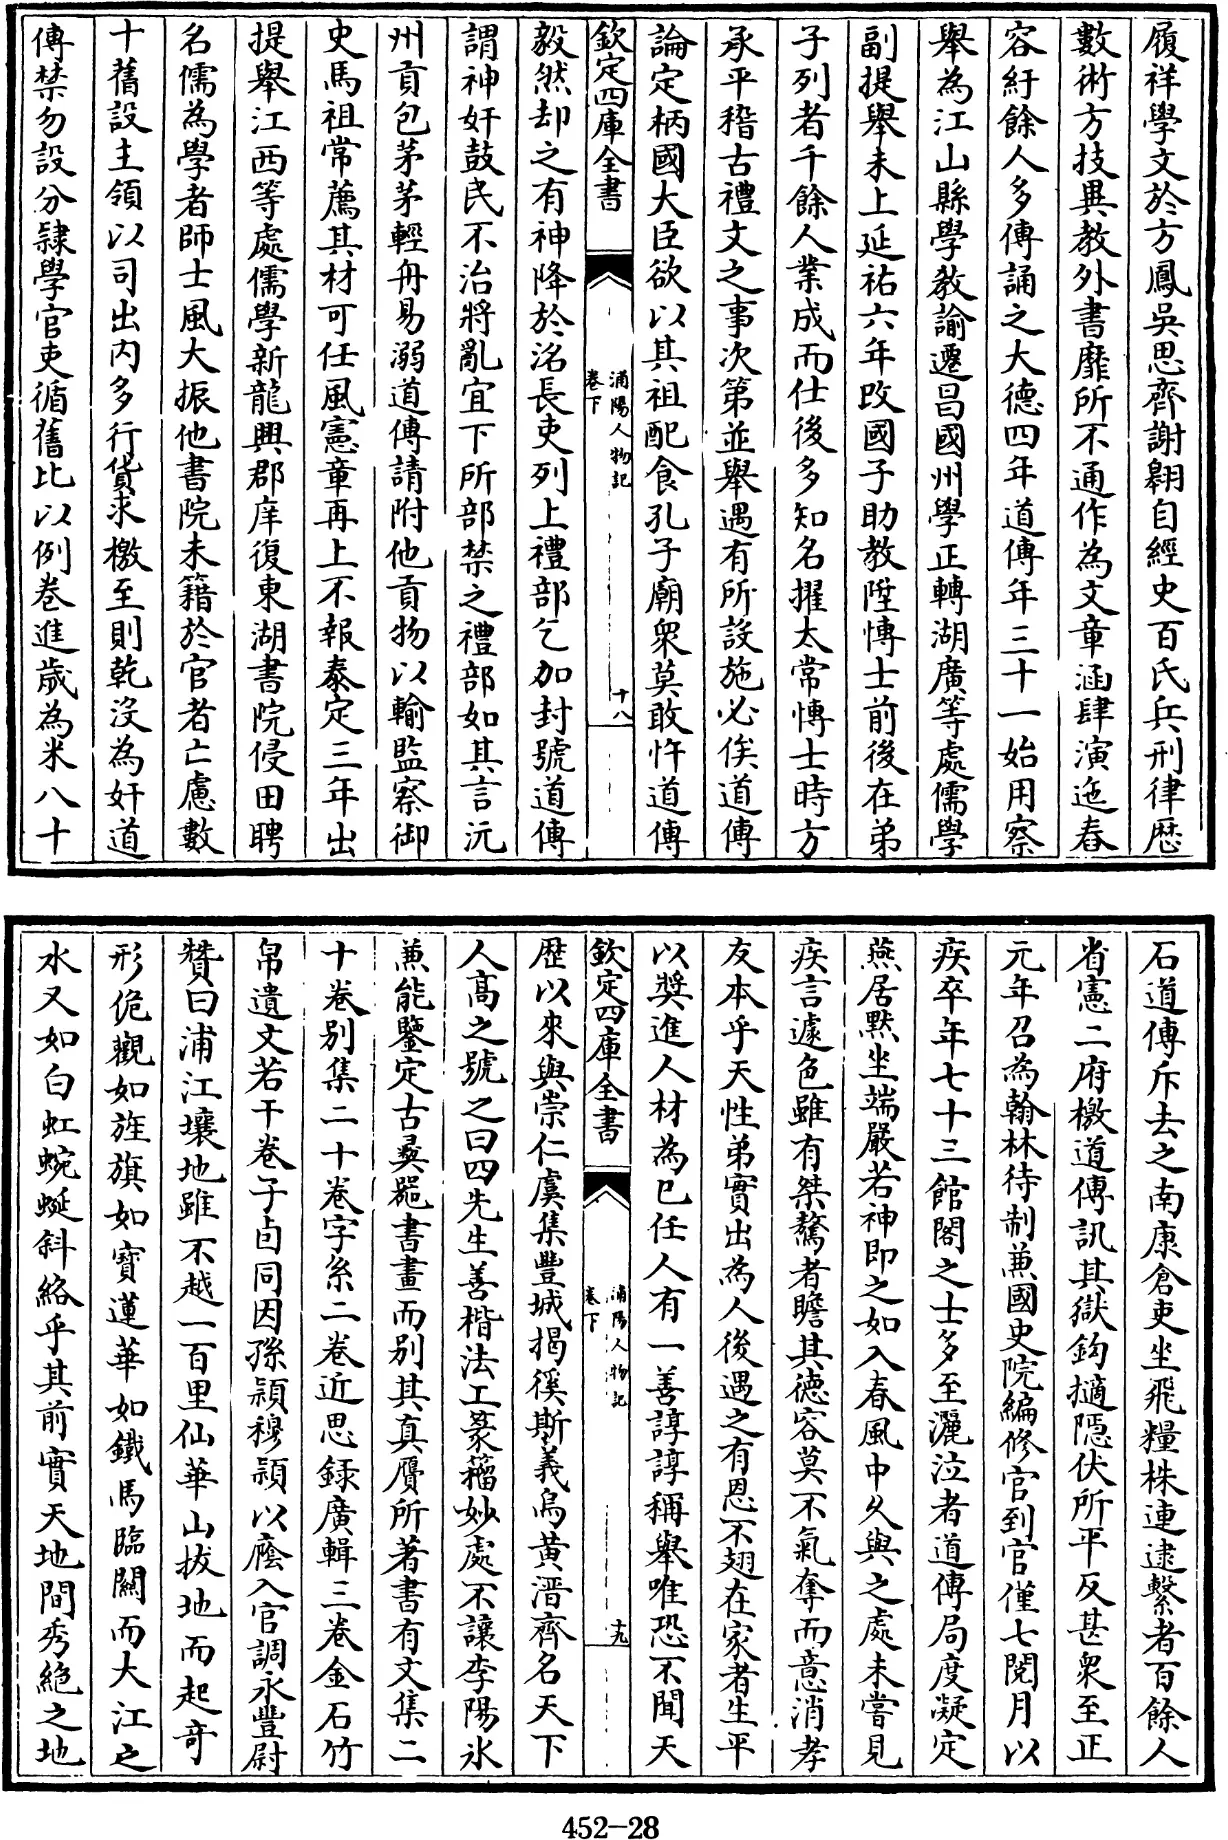 履祥學文於方鳳吳思齊謝翱自經史百氏兵刑律歷
數術方技異教外書靡所不通作為文章涵肆演迤舂
容紆餘人多傳誦之大德四年道傳年三十一始用察
舉為江山縣學教諭遷昌國州學正轉湖廣等處儒學
副提舉未上延祐六年改國子助教陞博士前後在弟
子列者千餘人業成而仕後多知名擢太常博士時方
承平稽古禮文之事次第並舉遇有所設施必俟道傳
論定柄國大臣欲以其祖配食孔子廟衆莫敢忤道傳
欽定四庫全書
浦陽人物記
卷下
十八
毅然却之有神降於洺長吏列上禮部乞加封號道傳
謂神奸鼓民不治將亂宜下所部禁之禮部如其言沅
州貢包茅茅輕舟易溺道傳請附他貢物以輸監察御
史馬祖常薦其材可任風憲章再上不報泰定三年出
提舉江西等處儒學新龍興郡庠復東湖書院侵田聘
名儒為學者師士風大振他書院未籍於官者亡慮數
十舊設主領以司出内多行貨求檄至則乾沒為奸道
傳禁勿設分隸學官吏循舊比以例卷進歲為米八十
石道傳斥去之南康倉吏坐飛糧株連逮繫者百餘人
省憲二府檄道傳訊其獄鈎擿隱伏所平反甚衆至正
元年召為翰林待制兼國史院編修官到官僅七閱月以
疾卒年七十三館閣之士多至灑泣者道傳局度凝定
燕居默坐端嚴若神即之如入春風中久與之處未嘗見
疾言遽色雖有桀驁者瞻其德容莫不氣奪而意消孝
友本乎天性弟實出為人後遇之有恩不翅在家者生平
以奨進人材為已任人有一善諄諄稱舉唯恐不聞天
欽定四庫全書
浦陽人物記
卷下
十九
歷以來與崇仁虞集豐城揭徯斯義烏黄溍齊名天下
人高之號之曰四先生善楷法工篆籀妙處不讓李陽氷
兼能鑒定古彞器書畫而别其真贋所著書有文集二
十卷别集二十卷字系二卷近思録廣輯三卷金石竹
帛遺文若干卷子卣同因孫穎穆穎以廕入官調永豐尉
贊曰浦江壤地雖不越一百里仙華山拔地而起竒
形佹觀如旌旗如寶蓮華如鐵馬臨關而大江之
水又如白虹蜿蜒斜絡乎其前實天地間秀絶之地
452-28